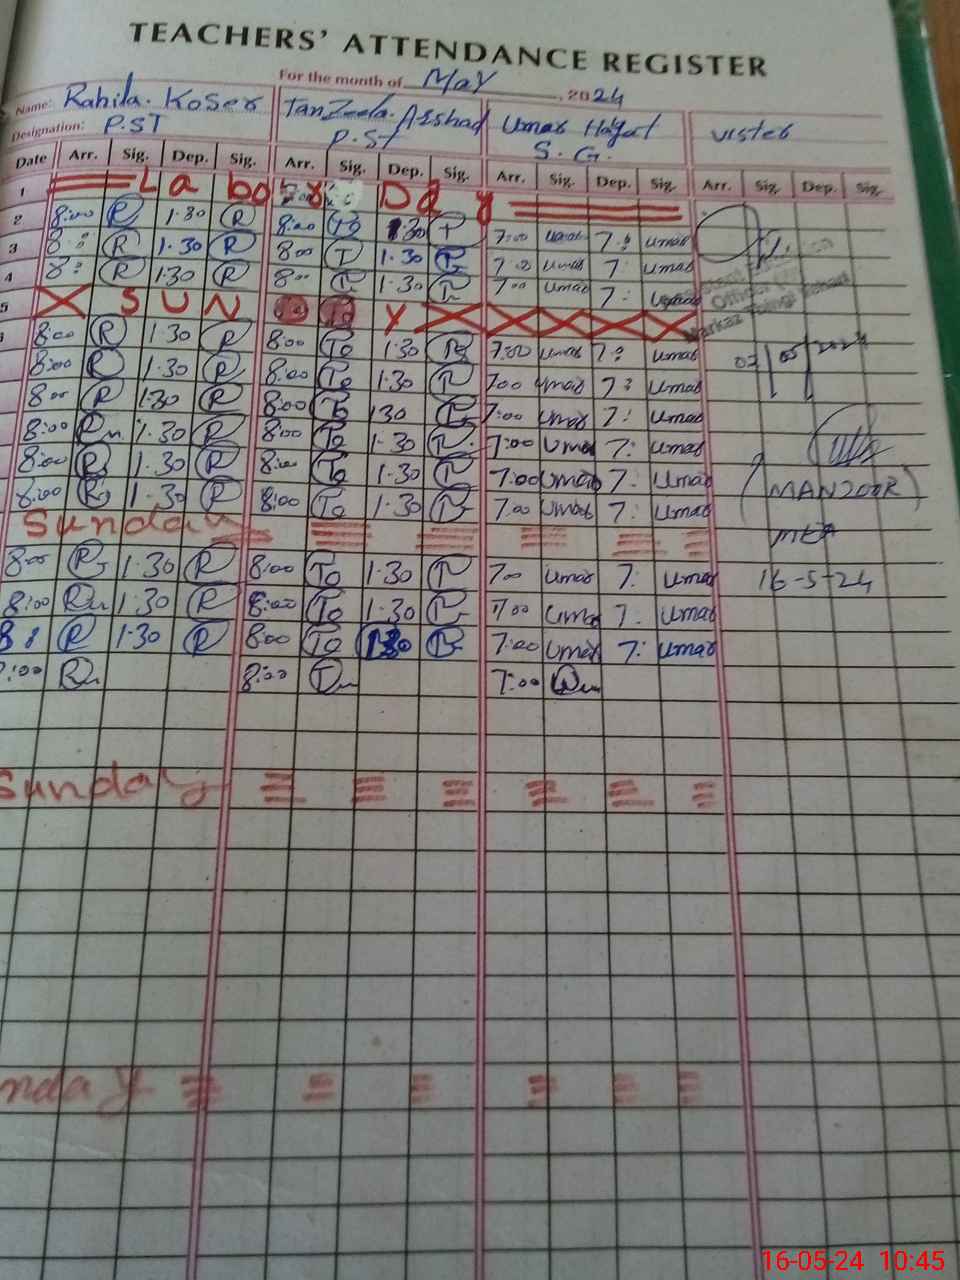 TEACHERS' ATTENDANCE REGISTER
For the month of May, 2024
Name: Rahila. Koser Tanzeela. Arshad Umar Hayat vister
Designation: P.ST P.ST S.G.
Date Arr. Sig. Dep. Sig. Arr. Sig. Dep. Sig. Arr. Sig. Dep. Sig. Arr. Sig. Dep. Sig.
1 Labour Day
2 8:00 R 1.30 R 8:00 To 1.30 T 7:00 Umar 7: Umar
3 8: R 1.30 R 8:00 T 1.30 T 7:00 Umar 7: Umar
4 8: R 1.30 R 8:00 T 1.30 T 7:00 Umar 7: Umar
5 X SUN DAY
8:00 R 1.30 R 8:00 To 1.30 T 7:00 Umar 7: Umar 07/05/2024
8:00 R 1.30 R 8:00 To 1.30 T 7:00 Umar 7: Umar
8:00 R 1.30 R 8:00 To 130 T 7:00 Umar 7: Umar
8:00 R 1.30 R 8:00 To 1.30 T 7:00 Umar 7: Umar
8:00 R 1.30 R 8:00 To 1.30 T 7:00 Umar 7: Umar
8:00 R 1.30 R 8:00 To 1.30 T 7:00 Umar 7: Umar (MANZOOR)
Sunday MEA
8:00 R 1.30 R 8:00 To 1.30 T 7:00 Umar 7: Umar 16-5-24
8:00 R 1.30 R 8:00 To 1.30 T 7:00 Umar 7: Umar
8: R 1.30 R 8:00 To 1.30 T 7:00 Umar 7: Umar
8:00 R 8:00 T 7:00
Sunday
nday
16-05-24 10:45